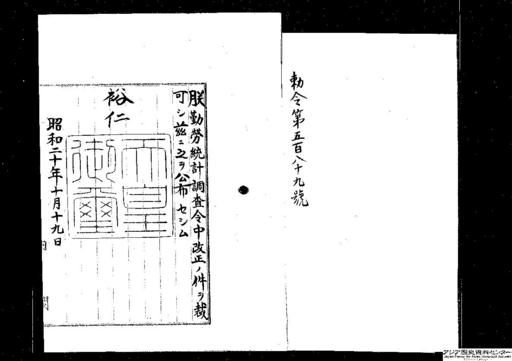 勅令第五百八十九號
朕勤勞統計調査令中改正ノ件ヲ裁
可シ茲ニ之ヲ公布セシム
裕仁
天皇
御璽
昭和二十年十月十九日
内
アジア歴史資料センター
Japan Center for Asian Historical Records